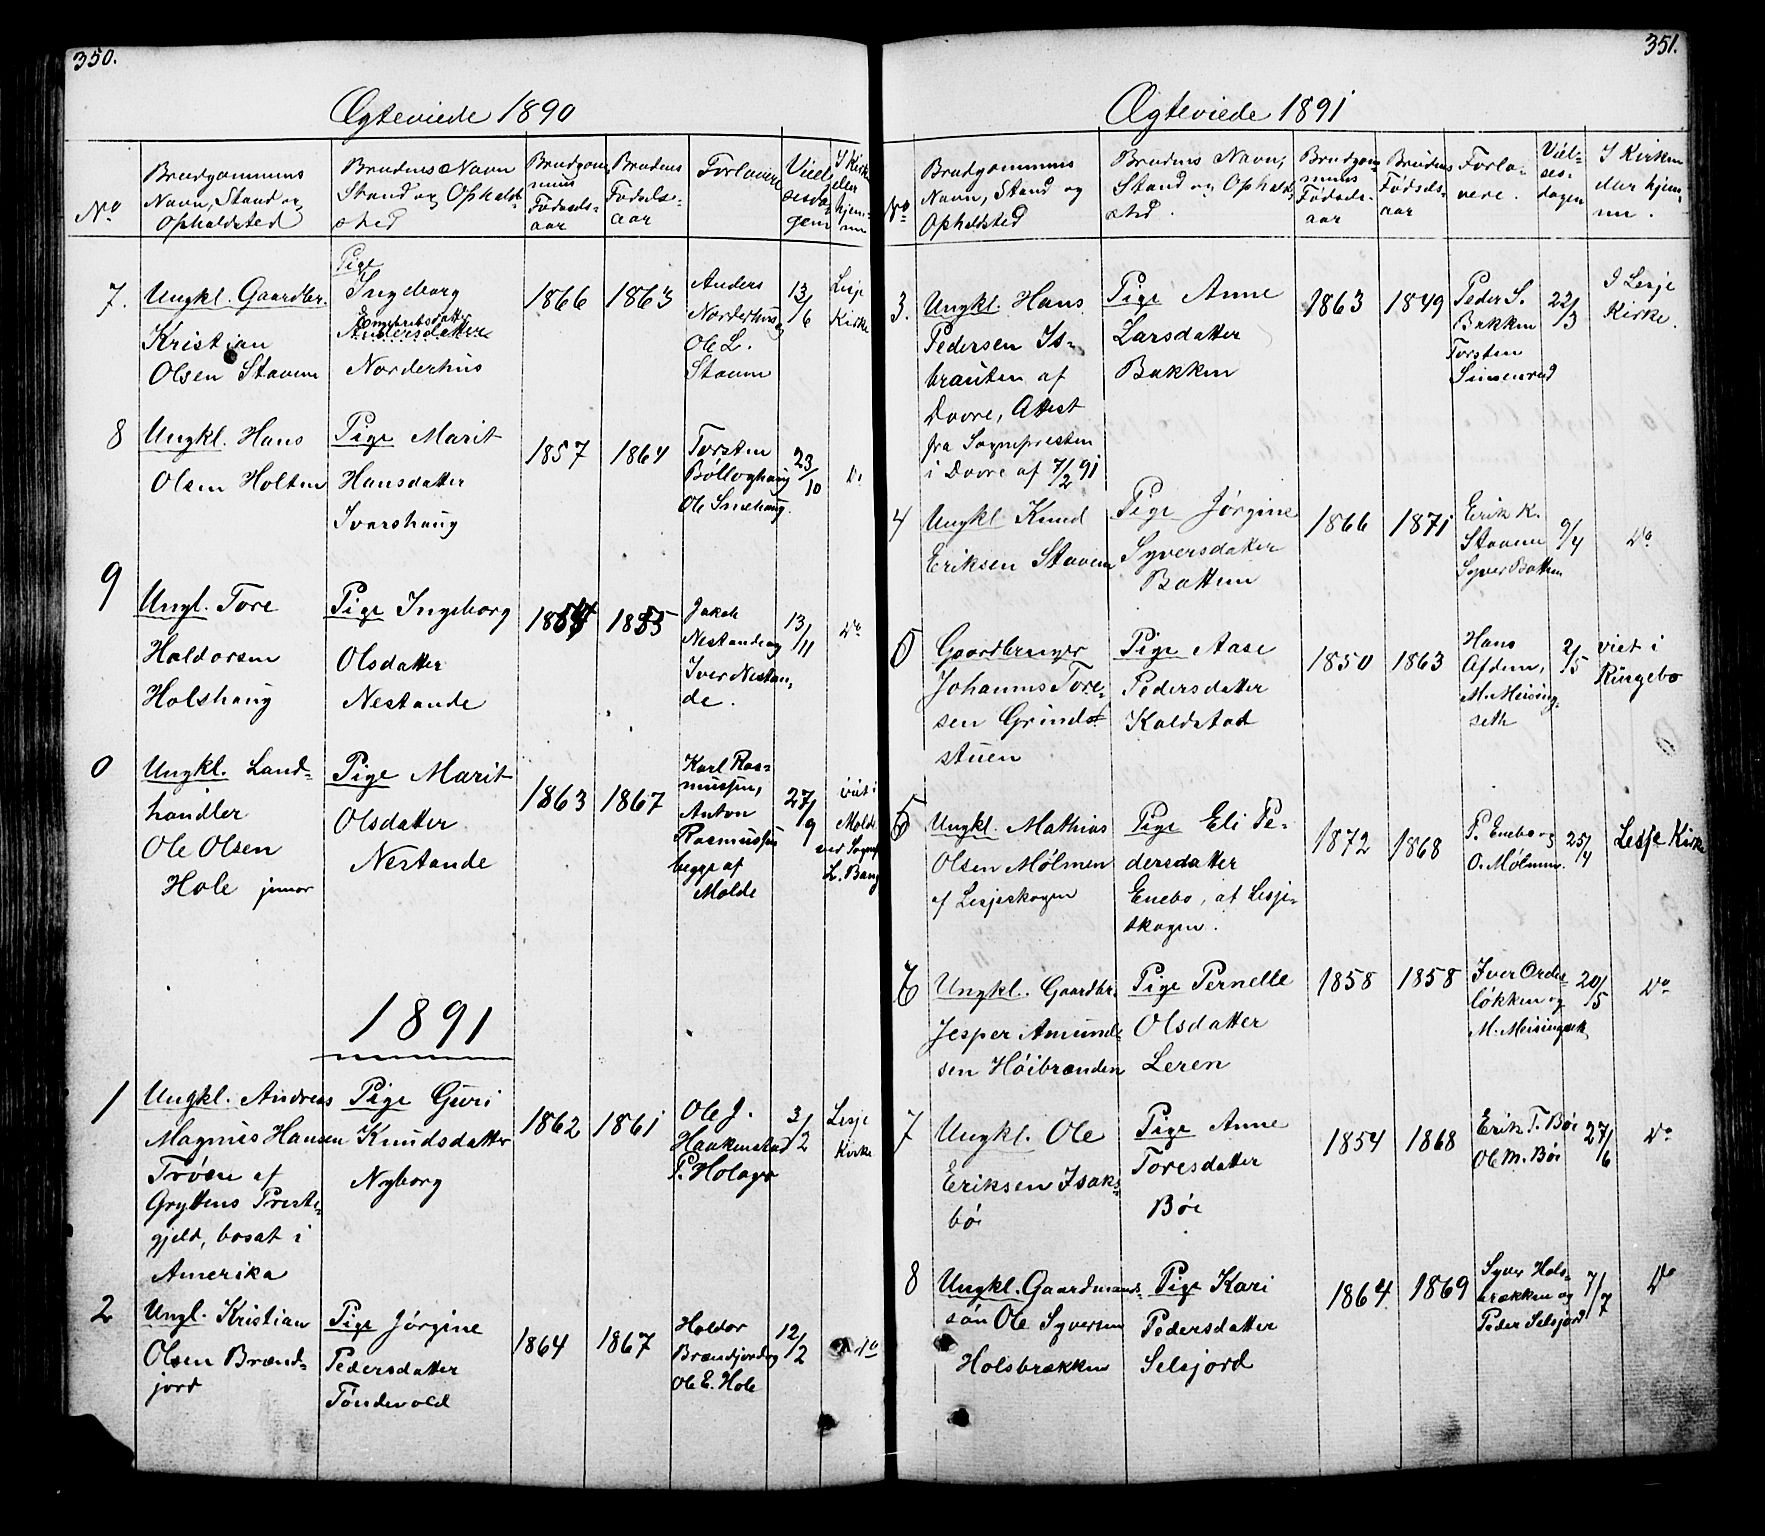 350.
Ægteviede 1890
No
Brudgommens
Navn, Stand og
Opholdsted
Brudens Navn
Stand og Opholds-
sted
Brudgom-
mens
Fødsels-
aar
Brudens
Fødsels-
aar
Forlovere
Viel-
sesda-
gen
I Kirke
eller
hjem-
me
7.
Ungkl. Gaardbr.
Kristian
Olsen Stavem
Pige
Ingeborg
Engebretsdatter
Andersdatter
Norderhus
1866
1863
Anders
Norderhus og
Ole L.
Stavem
13/6
Lesje
Kirke
8
Ungkl. Hans
Olsen Holten
Pige Marit
Hansdatter
Ivarshaug
1857
1864
Torsten
Ole
23/10
Do
9
Ungl. Tore
Haldorsen
Holshaug
Pige Ingeborg
Olsdatter
Nestande
1855
Jakob
Nestande og
Iver Nestan-
de.
13/11
Do
0
Ungkl. Land-
handler
Ole Olsen
Hole junior
Pige Marit
Olsdatter
Nestande
1863
1867
Karl Ras-
mussen,
Anton
Rasmussen
begge af
Molde
27/9
viet i
Molde
L. Bang
1891
1
Ungkl. Andreas
Magnus Hansen
Trøen af
Gryttens Preste-
gjeld, bosat i
Amerika
Pige Guri
Knudsdatter
Nyborg
1862
1861
Ole J.
Haakenstad
P. Holager
3/2
Lesje
Kirke
2
Ungl. Kristian
Olsen Brænd-
jord
Pige Jørgine
Pedersdatter
Tøndevold
1864
1867
Haldor
Brændjord og
Ole E. Hole
12/2
Do
351.
Ægteviede 1891
No
Brudgommens
Navn, Stand og
Opholdsted
Brudens Navn,
Stand og Opholds-
sted.
Brudgom-
mens
Fødsels-
aar
Brudens
Fødsels-
aar
Forlo-
vere.
Viel-
ses-
dagen
I Kirken
eller hjem-
me.
3.
Ungkl. Hans
Pedersen Is-
brauten af
Dovre, Attest
fra Sognepresten
i Dovre af 7/2 91
Pige Anne
Larsdatter
Bakken
1863
1849
Peder S.
Bakken
Torsten
22/3
I Lesje
Kirke.
4
Ungkl Knud
Eriksen Stavem
Pige Jørgine
Syversdatter
Botten
1866
1871
Erik K.
Stavem
Syver Botten
9/4
Do
5
Gaardbruger
Johannes Tore-
sen Grindstuen
Pige Aase
Pedersdatter
Koldstad
1850
1863
Hans
M. Meising-
seth
2/5
viet i
Ringebo
5
Ungkl. Mathias
Olsen Mølmen
af Lesjeskogen
Pige Eli Pe-
dersdatter
Enebo, at Lesje-
skogen.
1872
1868
P. Enebo og
O. Mølmen.
25/4
Lesje Kirke
6
Ungkl. Gaardbr.
Jesper Amund-
sen Høibrænden
Pige Pernelle
Olsdatter
Leren
1858
1858
Iver Orde-
løkken og
M. Meisingseth
20/5
Do
7
Ungkl. Ole
Eriksen Isaks-
bø
Pige Anne
Toresdatter
Bøe
1854
1868
Erik T. Bøe
Ole M. Bøe
27/6
Do
8
Ungkl. Gaardmands-
søn Ole Syversen
Holsbrækken
Pige Kari
Pedersdatter
Selsjord
1864
1869
Syver Hols-
brækken og
Peder Selsjord
7/7
Do